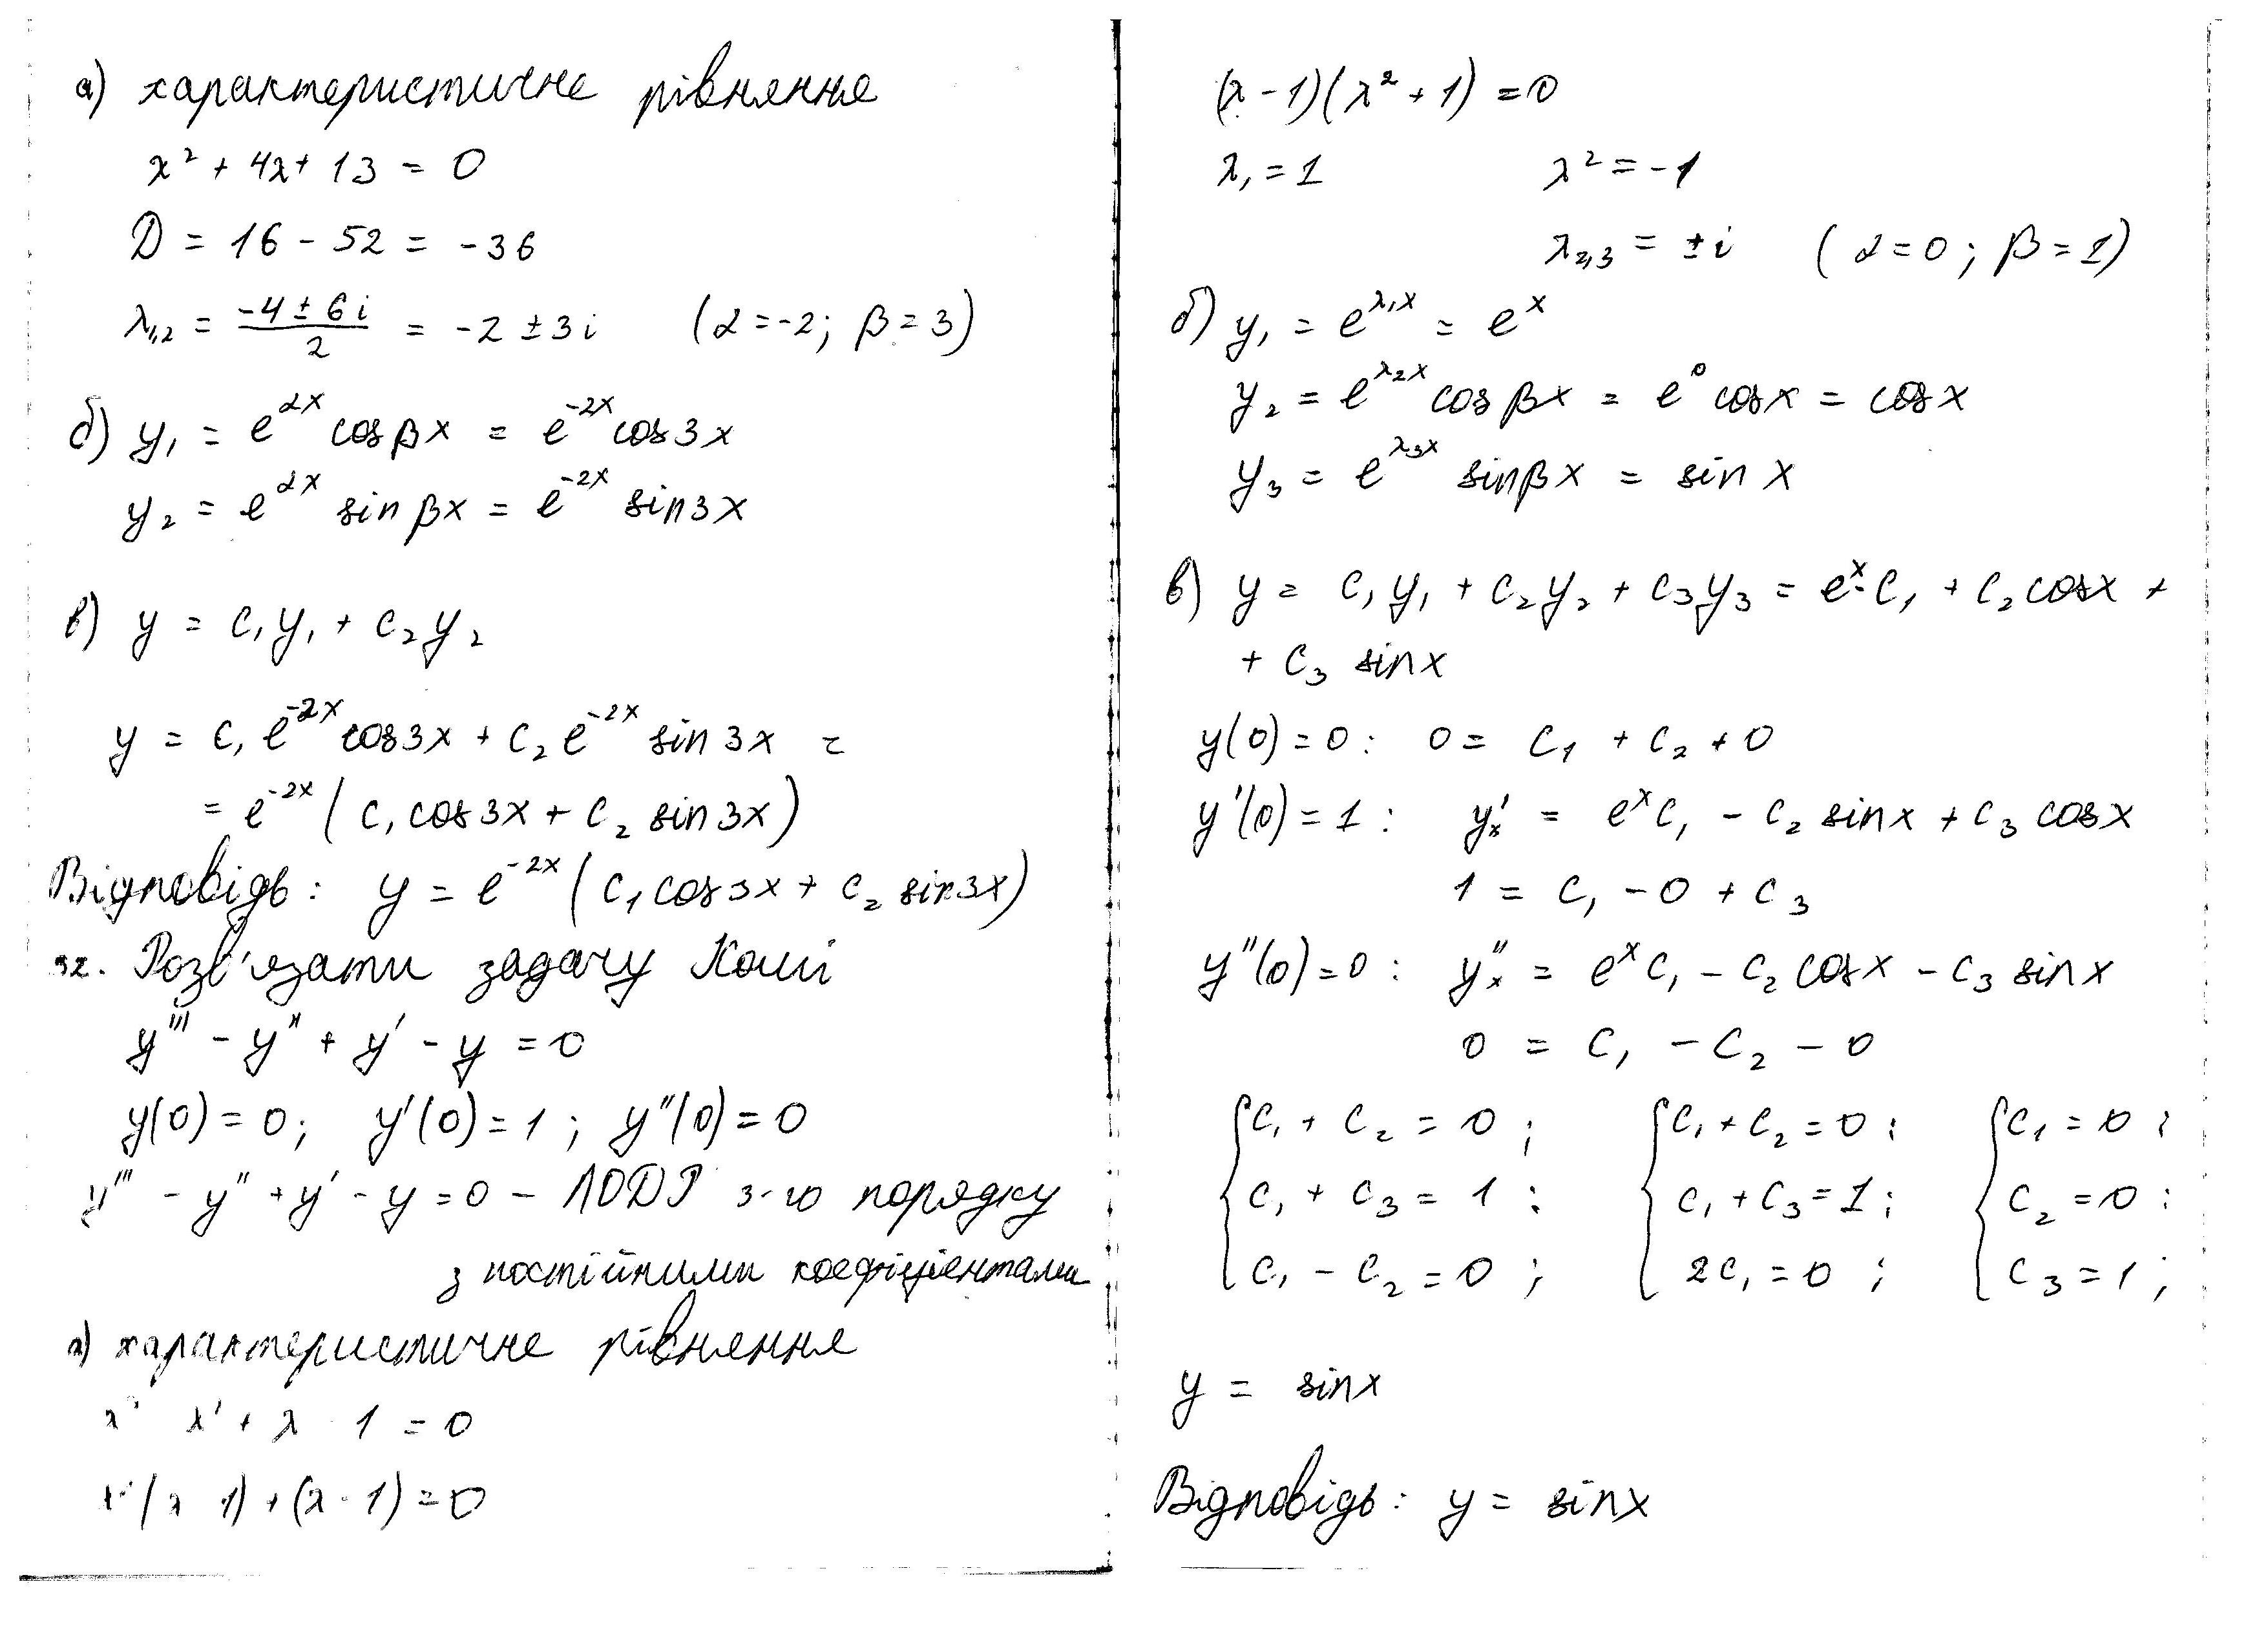 а) характеристичне рівняння
λ² + 4λ + 13 = 0
D = 16 - 52 = -36
λ₁,₂ = (-4 ± 6i)/2 = -2 ± 3i (α = -2; β = 3)
б) y₁ = e^αx cos βx = e^-2x cos 3x
y₂ = e^αx sin βx = e^-2x sin 3x
в) y = C₁y₁ + C₂y₂
y = C₁ e^-2x cos 3x + C₂ e^-2x sin 3x =
= e^-2x (C₁ cos 3x + C₂ sin 3x)
Відповідь: y = e^-2x (C₁ cos 3x + C₂ sin 3x)
32. Розв'язати задачу Коші
y''' - y'' + y' - y = 0
y(0) = 0; y'(0) = 1; y''(0) = 0
y''' - y'' + y' - y = 0 - ЛОДР 3-го порядку
з постійними коефіцієнтами
а) характеристичне рівняння
λ³ λ² + λ 1 = 0
λ² (λ 1) + (λ - 1) = 0
(λ - 1)(λ² + 1) = 0
λ₁ = 1 λ² = -1
λ₂,₃ = ± i (α = 0; β = 1)
б) y₁ = e^λ₁x = e^x
y₂ = e^λ₂x cos βx = e^0 cos x = cos x
y₃ = e^λ₃x sin βx = sin x
в) y = C₁y₁ + C₂y₂ + C₃y₃ = e^x·C₁ + C₂ cos x +
+ C₃ sin x
y(0) = 0: 0 = C₁ + C₂ + 0
y'(0) = 1: y'ₓ = e^x C₁ - C₂ sin x + C₃ cos x
1 = C₁ - 0 + C₃
y''(0) = 0: y''ₓ = e^x C₁ - C₂ cos x - C₃ sin x
0 = C₁ - C₂ - 0
{ C₁ + C₂ = 0; { C₁ + C₂ = 0; { C₁ = 0;
C₁ + C₃ = 1; C₁ + C₃ = 1; C₂ = 0;
C₁ - C₂ = 0; 2C₁ = 0; C₃ = 1;
y = sin x
Відповідь: y = sin x